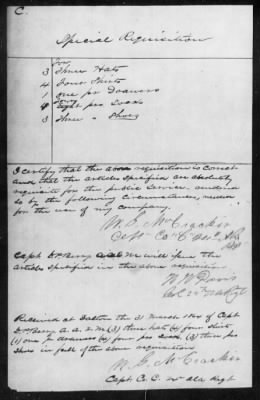 C.
Special Requisition
For
3 Three Hats
4 Four Shirts
1 one pr Drawers
4 Eight prs Socks
3 Three " Shoes
I certify that the above requisition is correct
and that the articles specified are absolutely
requisite for the public service, rendered
so by the following circumstances,
for the use of my company.
M. G. McCracken
Capt Co "C"
Capt will issue the
articles specified in the above requisition
Received at the 31 March 1864 of Capt
A. Q. M (3) three hats (4) four shirts
(1) one pr drawers (4) four prs socks, (3) three prs
Shoes in full of the above requisition
M. G. McCracken
Capt Co. C. Ala Regt